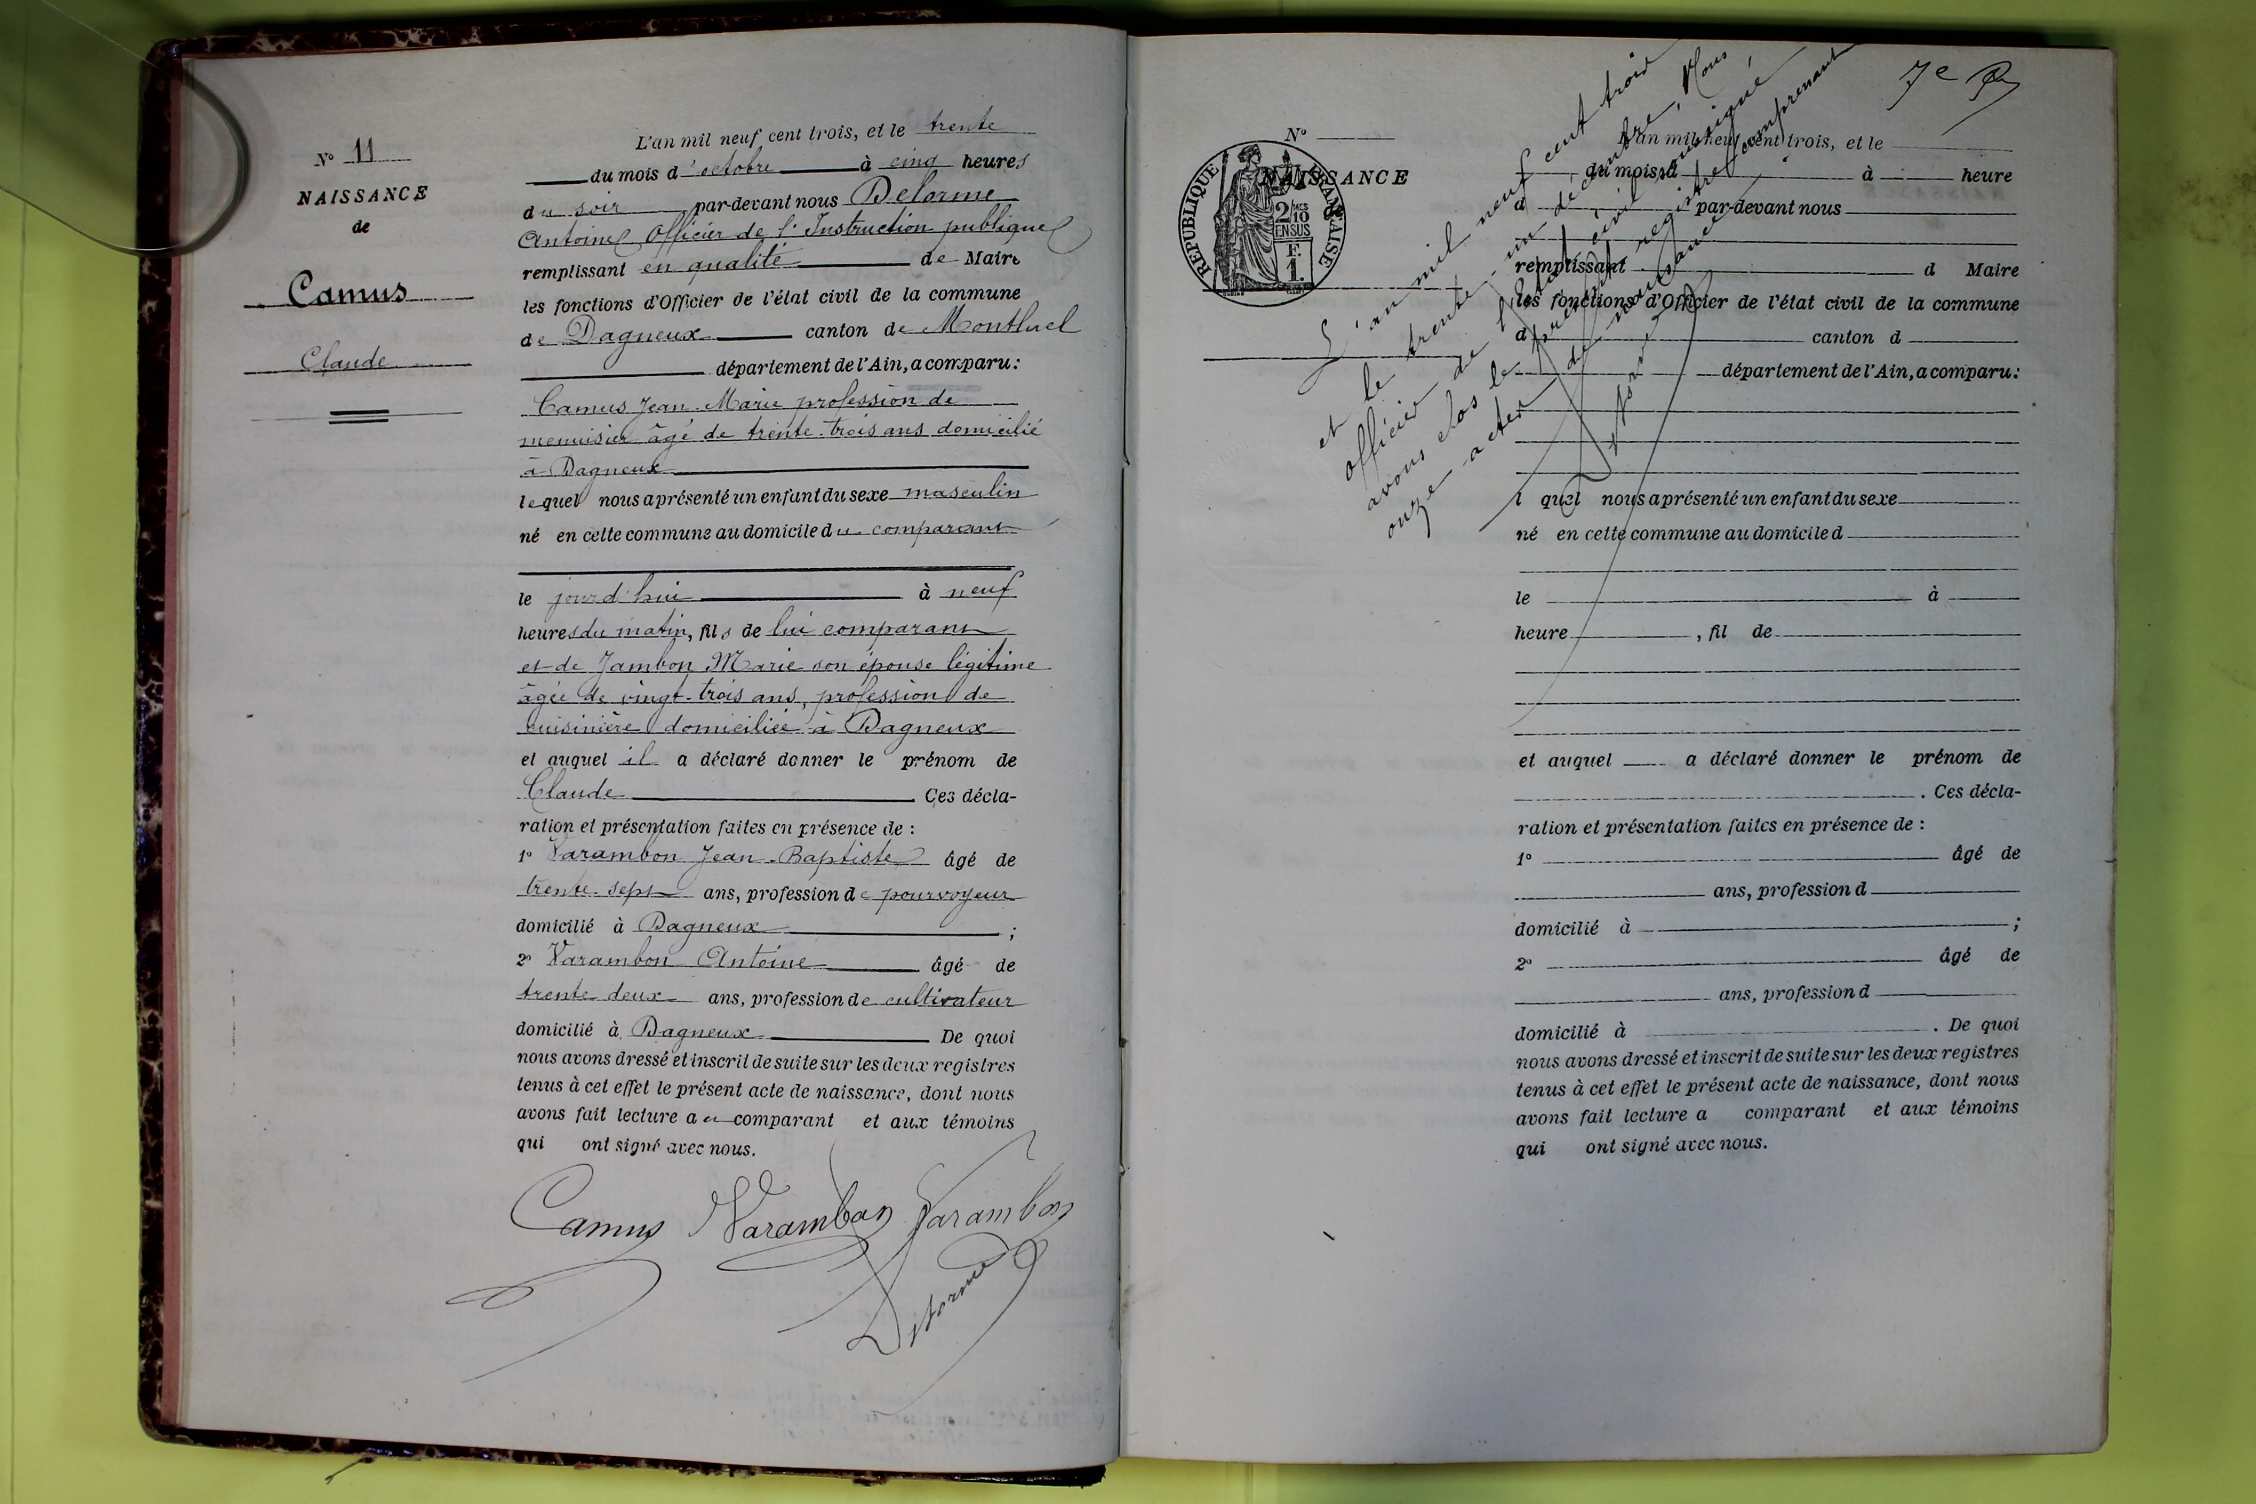 N° 11
NAISSANCE
de
Camus
Claude
L'an mil neuf cent trois, et le trente
du mois d'octobre à cinq heures
du soir par-devant nous Delorme
Antoine, Officier de l'Instruction publique
remplissant en qualité de Maire
les fonctions d'Officier de l'état civil de la commune
de Dagneux canton de Montluel
département de l'Ain, a comparu :
Camus Jean-Marie profession de
menuisier âgé de trente-trois ans domicilié
à Dagneux
lequel nous a présenté un enfant du sexe masculin
né en cette commune au domicile du comparant
le jourd'hui à neuf
heures du matin, fils de lui comparant
et de Jambon Marie son épouse légitime
âgée de vingt-trois ans, profession de
cuisinière domiciliée à Dagneux
et auquel il a déclaré donner le prénom de
Claude Ces décla-
ration et présentation faites en présence de :
1° Varambon Jean-Baptiste âgé de
trente-sept ans, profession de pourvoyeur
domicilié à Dagneux ;
2° Varambon Antoine âgé de
trente deux ans, profession de cultivateur
domicilié à Dagneux De quoi
nous avons dressé et inscrit de suite sur les deux registres
tenus à cet effet le présent acte de naissance, dont nous
avons fait lecture au comparant et aux témoins
qui ont signé avec nous.
Camus Varambon Varambon
Delorme
7e
N°
NAISSANCE
RÉPUBLIQUE FRANÇAISE
2/10 EN SUS
F.
1.
L'an mil neuf cent trois, et le
du mois d à heure
d par-devant nous
remplissant d Maire
les fonctions d'Officier de l'état civil de la commune
d canton d
département de l'Ain, a comparu :
l quel nous a présenté un enfant du sexe
né en cette commune au domicile d
le à
heure , fil de
et auquel a déclaré donner le prénom de
. Ces décla-
ration et présentation faites en présence de :
1° âgé de
ans, profession d
domicilié à ;
2° âgé de
ans, profession d
domicilié à . De quoi
nous avons dressé et inscrit de suite sur les deux registres
tenus à cet effet le présent acte de naissance, dont nous
avons fait lecture a comparant et aux témoins
qui ont signé avec nous.
L'an mil neuf cent trois
et le trente-un décembre, Nous
officier de l'état civil soussigné
avons clos le présent registre comprenant
onze actes de naissance
Delorme